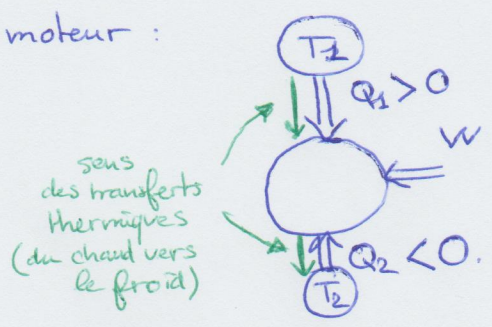 moteur :
T1
Q1 > 0
W
sens
des transferts
thermiques
(du chaud vers
le froid)
Q2 < 0.
T2